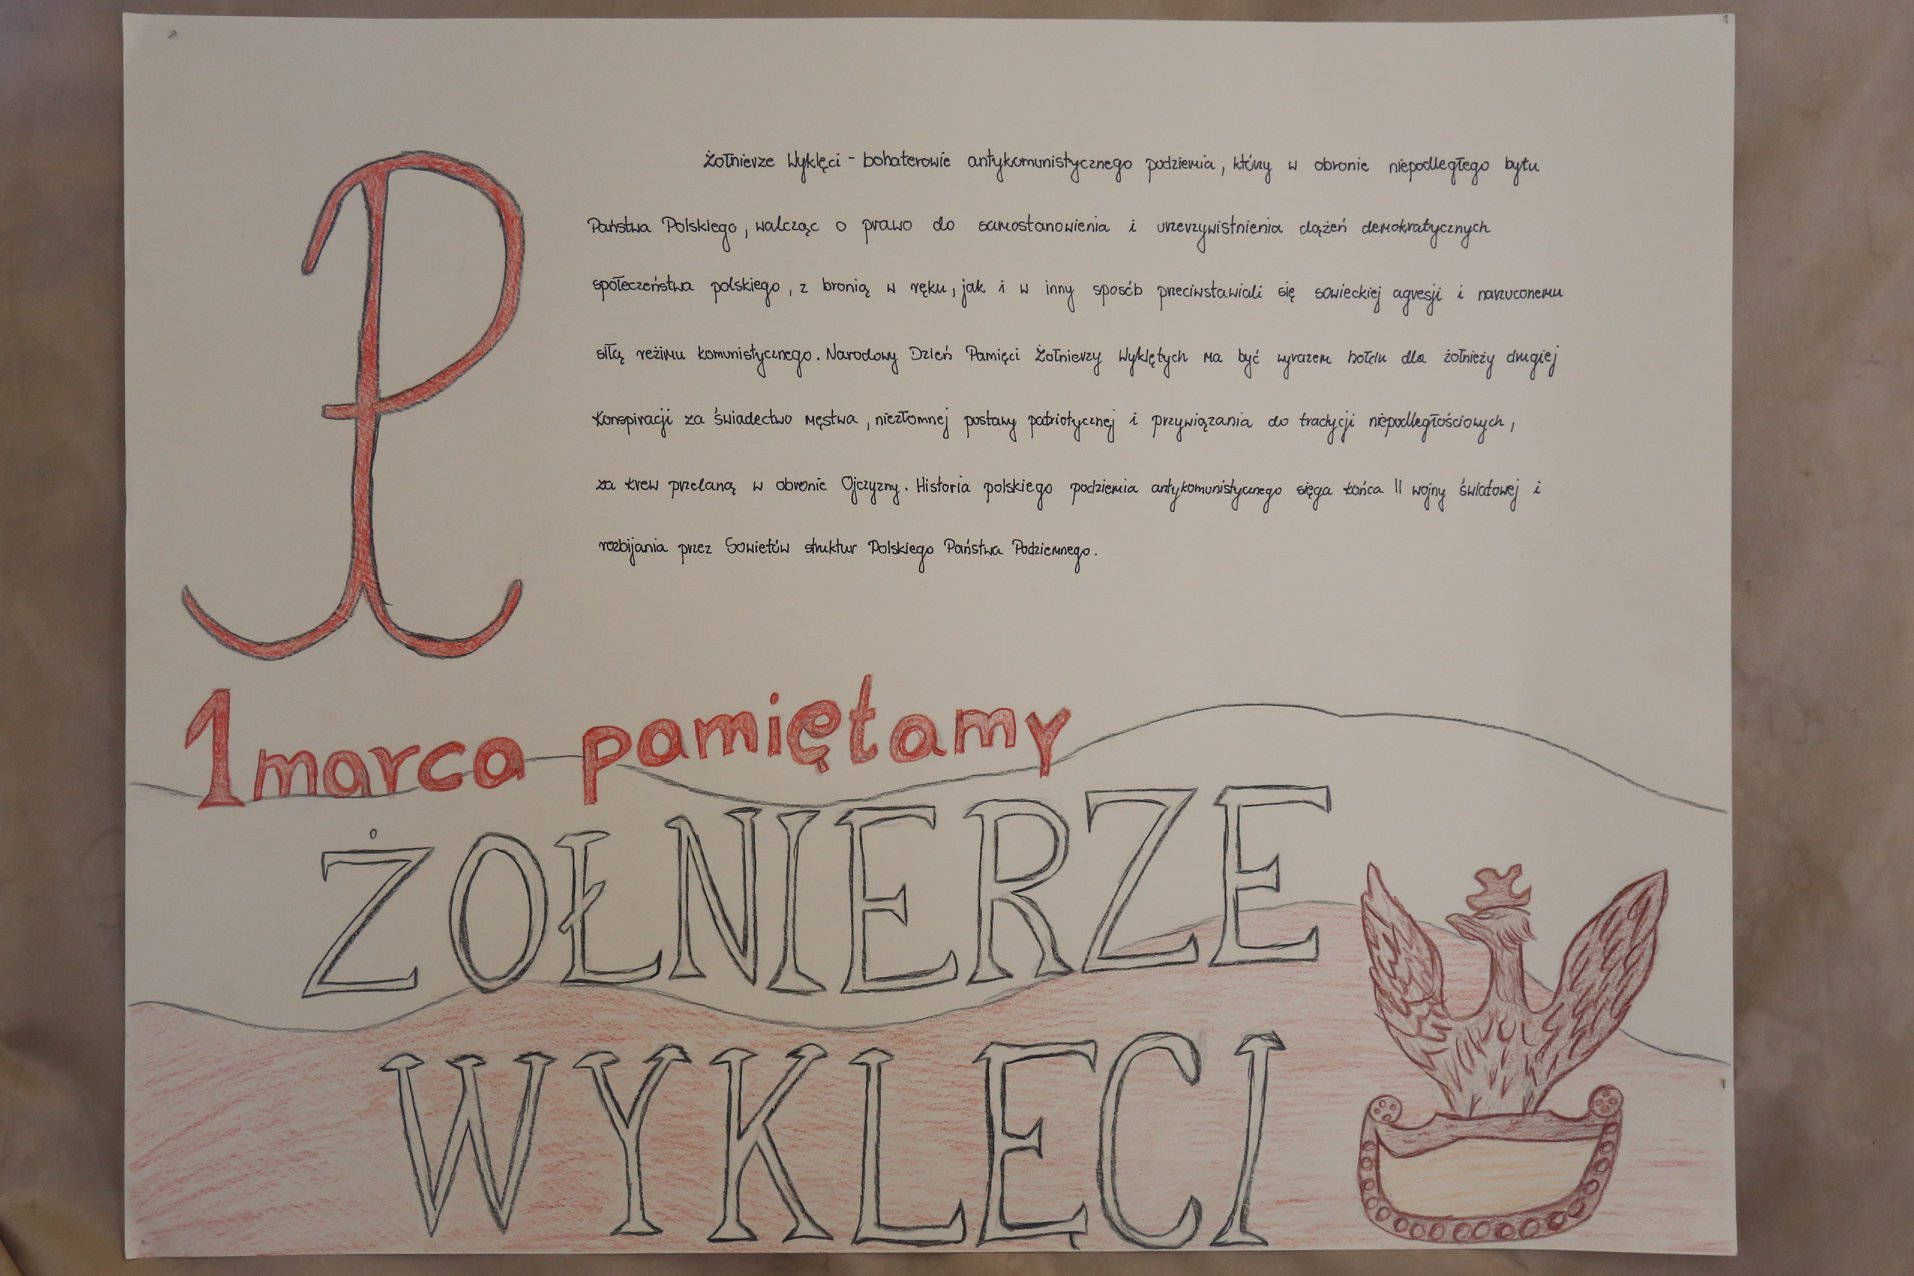 Żołnierze Wyklęci - bohaterowie antykomunistycznego podziemia, którzy w obronie niepodległego bytu
Państwa Polskiego, walcząc o prawo do samostanowienia i urzeczywistnienia dążeń demokratycznych
społeczeństwa polskiego, z bronią w ręku, jak i w inny sposób przeciwstawiali się sowieckiej agresji i narzuconemu
siłą reżimu komunistycznego. Narodowy Dzień Pamięci Żołnierzy Wyklętych ma być wyrazem hołdu dla żołnieży drugiej
konspiracji za świadectwo męstwa, niezłomnej postawy patriotycznej i przywiązania do tradycji niepodległościowych,
za krew przelaną w obronie Ojczyzny. Historia polskiego podziemia antykomunistycznego sięga końca II wojny światowej i
rozbijania przez Sowietów struktur Polskiego Państwa Podziemnego.
1 marca pamiętamy
ŻOŁNIERZE
WYKLĘCI